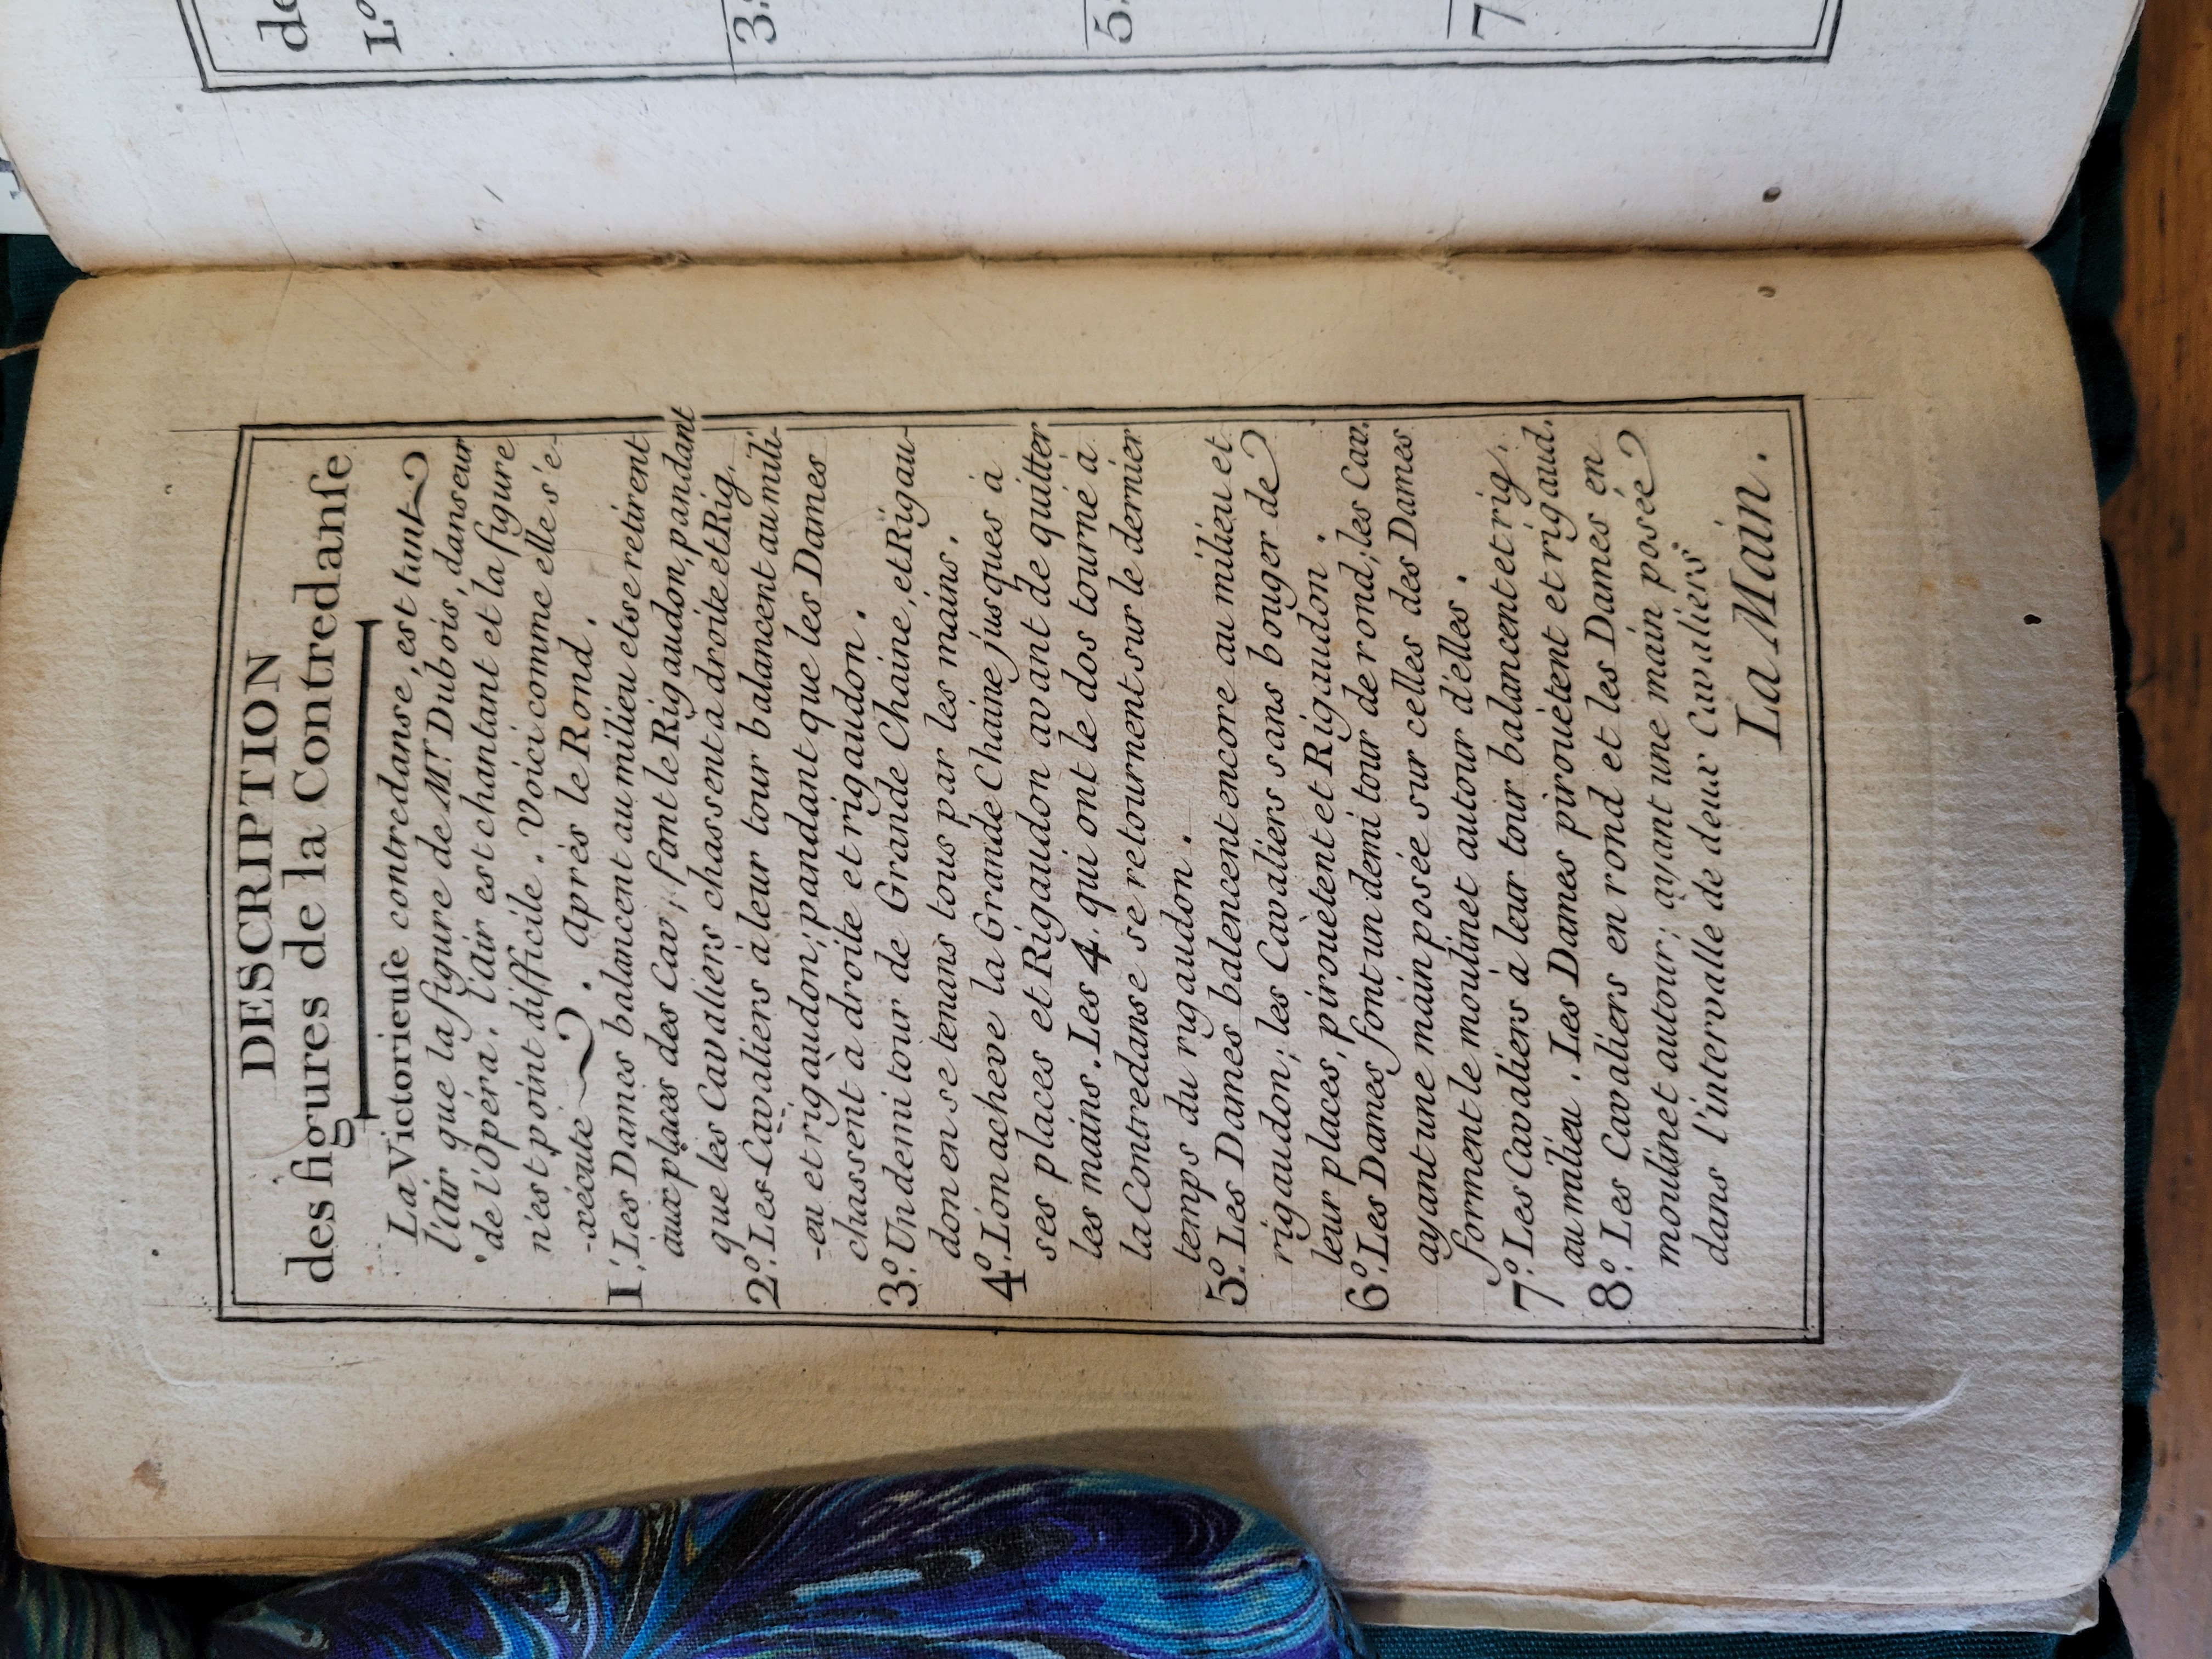 DESCRIPTION
des figures de la Contredanſe
La Victorieuſe contredanse, est tant
l'Air que la figure de Mr. Dubois, danseur
de l'Opéra. l'air est chantant et la figure
n'est point difficile. Voici comme elle s'e-
-xécute. après le Rond.
1.º Les Dames balancent au milieu et se retirent
aux places des Cav; font le Rigaudon, pandant
que les Cavaliers chassent a droite et Rig.
2.º Les Cavaliers à leur tour balancent au mili-
-eu et rigaudon; pandant que les Dames
chassent à droite et rigaudon.
3.º Un demi tour de Grande Chaine, et Rigau-
don en se tenans tous par les mains.
4.º L'on acheve la Grande Chaine jusques à
ses places et Rigaudon avant de quitter
les mains. Les 4. qui ont le dos tourné à
la Contredanse se retournent sur le dernier
temps du rigaudon.
5.º Les Dames balencent encore au milieu et
rigaudon; les Cavaliers sans bouger de
leur places, pirouètent et Rigaudon.
6.º Les Dames font un demi tour de rond; les Cav.
ayant une main posée sur celles des Dames
forment le moulinet autour d'elles.
7.º Les Cavaliers à leur tour balancent et rig.
au milieu. Les Dames pirouètent et rigaud.
8.º Les Cavaliers en rond et les Dames en
moulinet autour; ayant une main posée
dans l'intervalle de deux Cavaliers.
La Main.
de
L.º
3.
5.
7